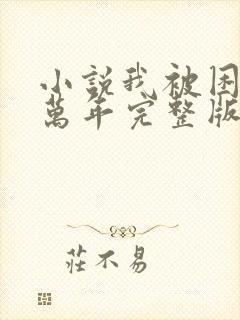 小說我被困
萬年完整版
莊不易